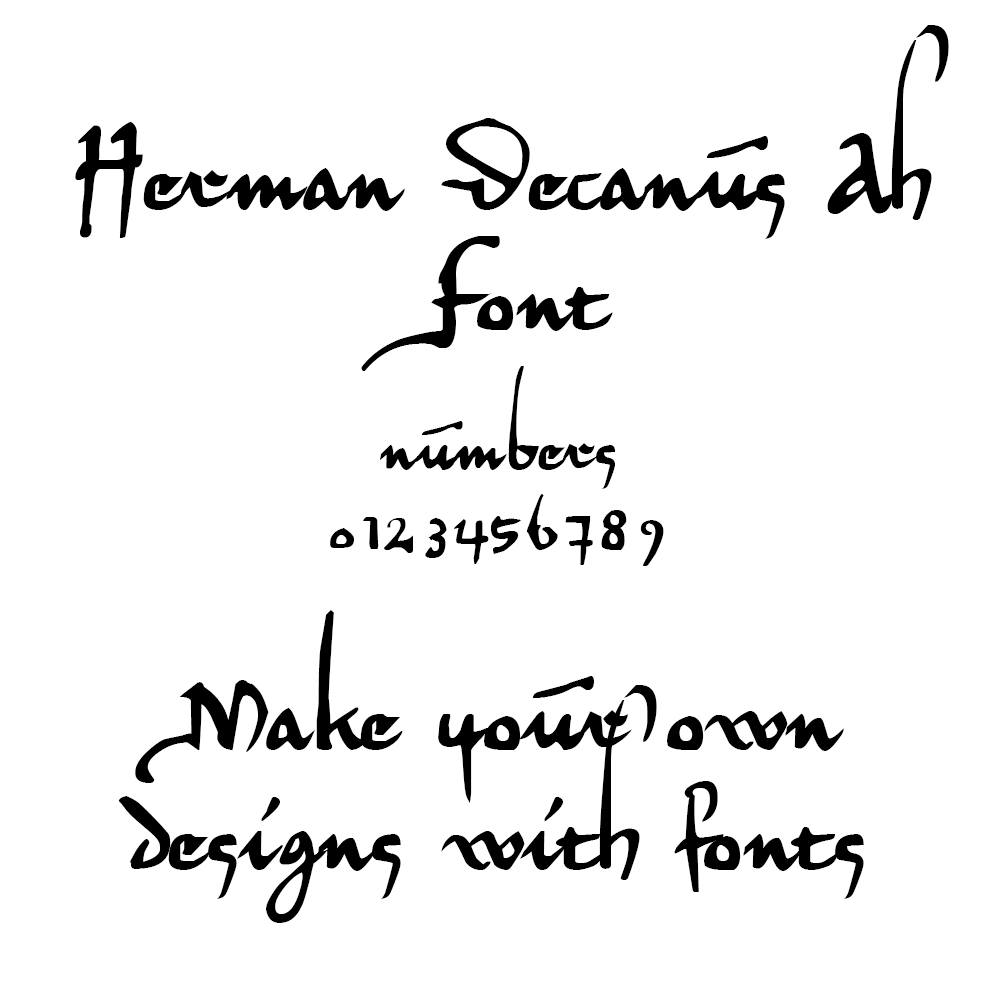 Herman Decanus Ah
font
numbers
0123456789
Make your own
designs with fonts